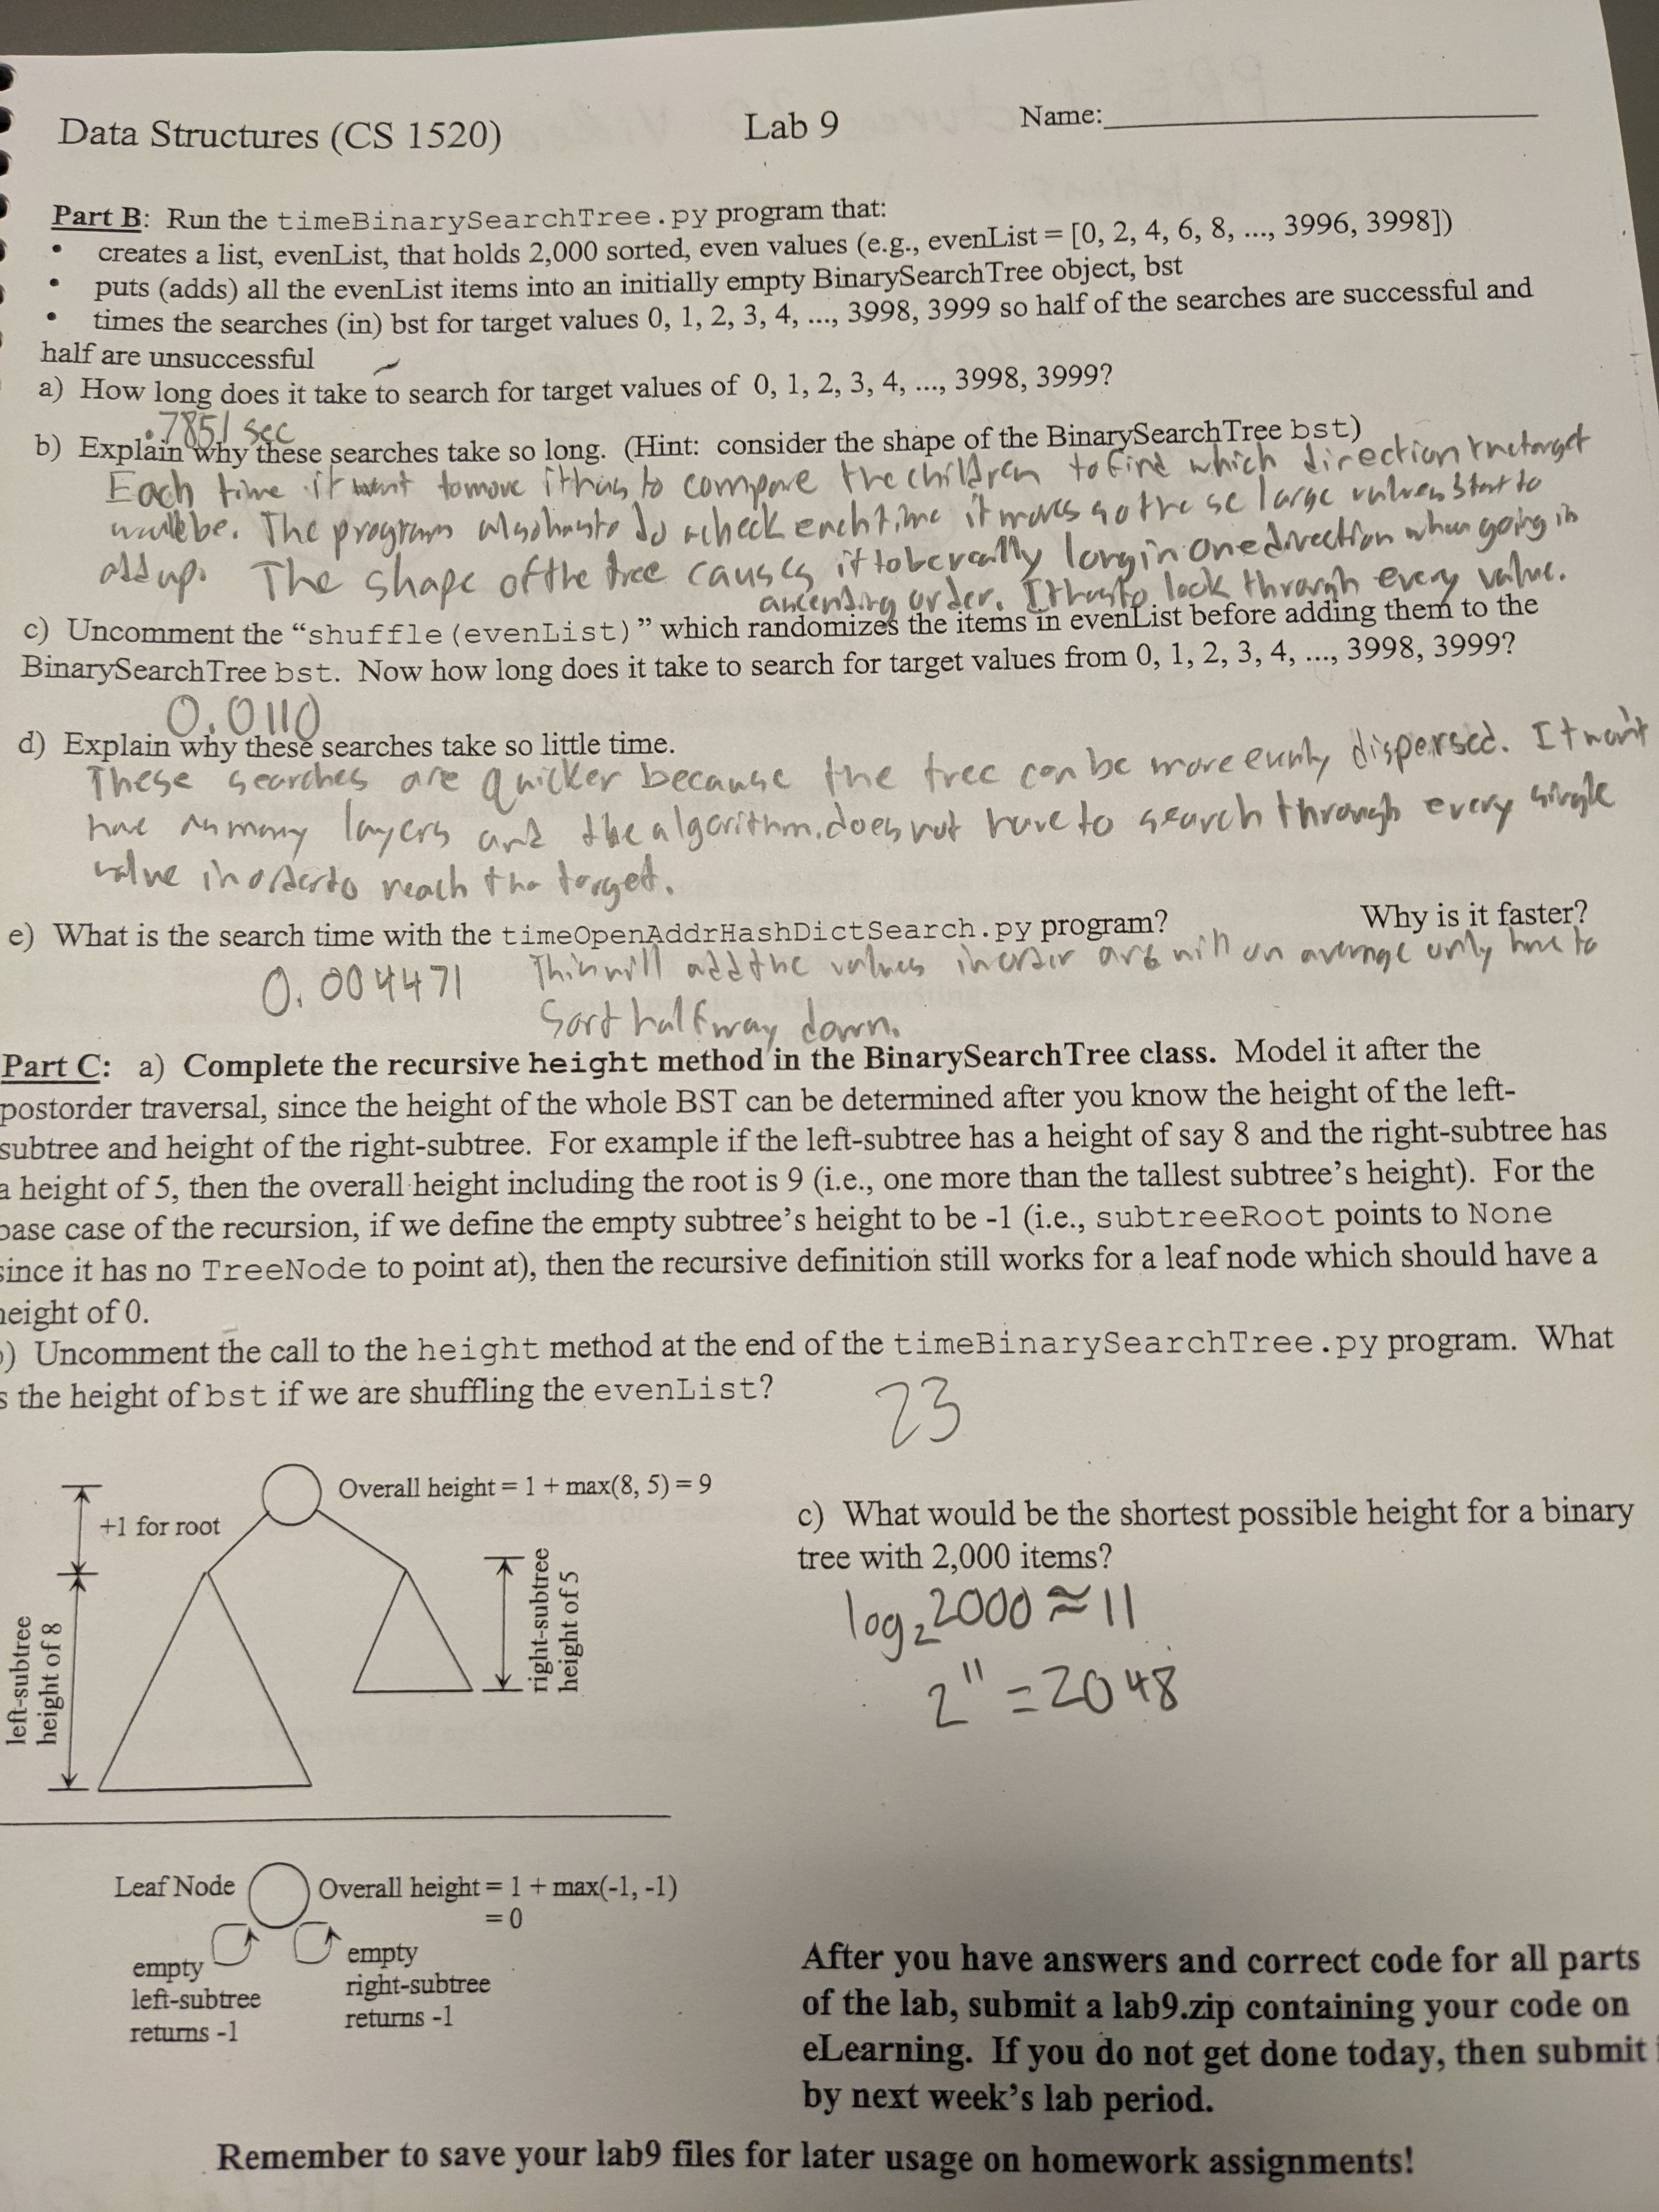 Data Structures (CS 1520) Lab 9 Name:
Part B: Run the timeBinarySearchTree.py program that:
• creates a list, evenList, that holds 2,000 sorted, even values (e.g., evenList = [0, 2, 4, 6, 8, ..., 3996, 3998])
• puts (adds) all the evenList items into an initially empty BinarySearchTree object, bst
• times the searches (in) bst for target values 0, 1, 2, 3, 4, ..., 3998, 3999 so half of the searches are successful and
half are unsuccessful
a) How long does it take to search for target values of 0, 1, 2, 3, 4, ..., 3998, 3999?
.7851 sec
b) Explain why these searches take so long. (Hint: consider the shape of the BinarySearchTree bst)
Each time it to move it has to compare the children to find which direction the target
will be. The program also has to do a check each time it moves so these large values start to
add up. The shape of the tree causes it to be really long in one direction when going in
ascending order. It has to look through every value.
c) Uncomment the “shuffle(evenList)” which randomizes the items in evenList before adding them to the
BinarySearchTree bst. Now how long does it take to search for target values from 0, 1, 2, 3, 4, ..., 3998, 3999?
0.0110
d) Explain why these searches take so little time.
These searches are quicker because the tree can be more evenly dispersed. It won't
have as many layers and the algorithm does not have to search through every single
value in order to reach the target.
e) What is the search time with the timeOpenAddrHashDictSearch.py program? Why is it faster?
0.004471 This will add the values in order and will on average only have to
Sort halfway down.
Part C: a) Complete the recursive height method in the BinarySearchTree class. Model it after the
postorder traversal, since the height of the whole BST can be determined after you know the height of the left-
subtree and height of the right-subtree. For example if the left-subtree has a height of say 8 and the right-subtree has
a height of 5, then the overall height including the root is 9 (i.e., one more than the tallest subtree’s height). For the
base case of the recursion, if we define the empty subtree’s height to be -1 (i.e., subtreeRoot points to None
since it has no TreeNode to point at), then the recursive definition still works for a leaf node which should have a
height of 0.
) Uncomment the call to the height method at the end of the timeBinarySearchTree.py program. What
s the height of bst if we are shuffling the evenList?
23
Overall height = 1 + max(8, 5) = 9
+1 for root
left-subtree
height of 8
right-subtree
height of 5
c) What would be the shortest possible height for a binary
tree with 2,000 items?
log₂2000 ≈ 11
2¹¹ = 2048
Leaf Node Overall height = 1 + max(-1, -1)
= 0
empty
left-subtree
returns -1
empty
right-subtree
returns -1
After you have answers and correct code for all parts
of the lab, submit a lab9.zip containing your code on
eLearning. If you do not get done today, then submit
by next week’s lab period.
Remember to save your lab9 files for later usage on homework assignments!